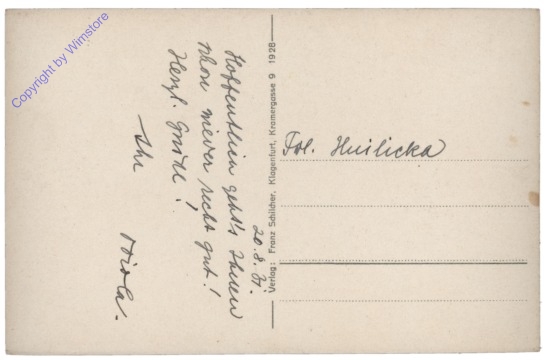 20.8.31.
Hoffentlich geht's Ihnen
schon wieder recht gut!
Herzl. Grüße!
Ihr
Viola.
Frl. Husilicka
Verlag: Franz Schilcher, Klagenfurt, Kramergasse 9 1928
Copyright by Wimstore